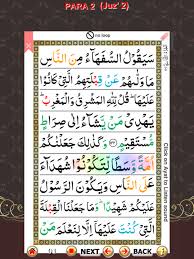 PARA 2 (Juz' 2)
no loop
سَيَقُوْلُ السُّفَهَآءُ مِنَ النَّاسِ
مَا وَلّٰىهُمْ عَنْ قِبْلَتِهِمُ الَّتِيْ كَانُوْا
عَلَيْهَا ؕ قُلْ لِّلّٰهِ الْمَشْرِقُ وَالْمَغْرِبُ ؕ
يَهْدِيْ مَنْ يَّشَآءُ اِلٰى صِرَاطٍ
مُّسْتَقِيْمٍ وَكَذٰلِكَ جَعَلْنٰكُمْ
اُمَّةً وَّسَطًا لِّتَكُوْنُوْا شُهَدَآءَ
عَلَى النَّاسِ وَيَكُوْنَ الرَّسُوْلُ
عَلَيْكُمْ شَهِيْدًا ؕ وَمَا جَعَلْنَا الْقِبْلَةَ
الَّتِيْ كُنْتَ عَلَيْهَآ اِلَّا لِنَعْلَمَ مَنْ
Click on Ayat to Listen sound
NEXT HOME BACK